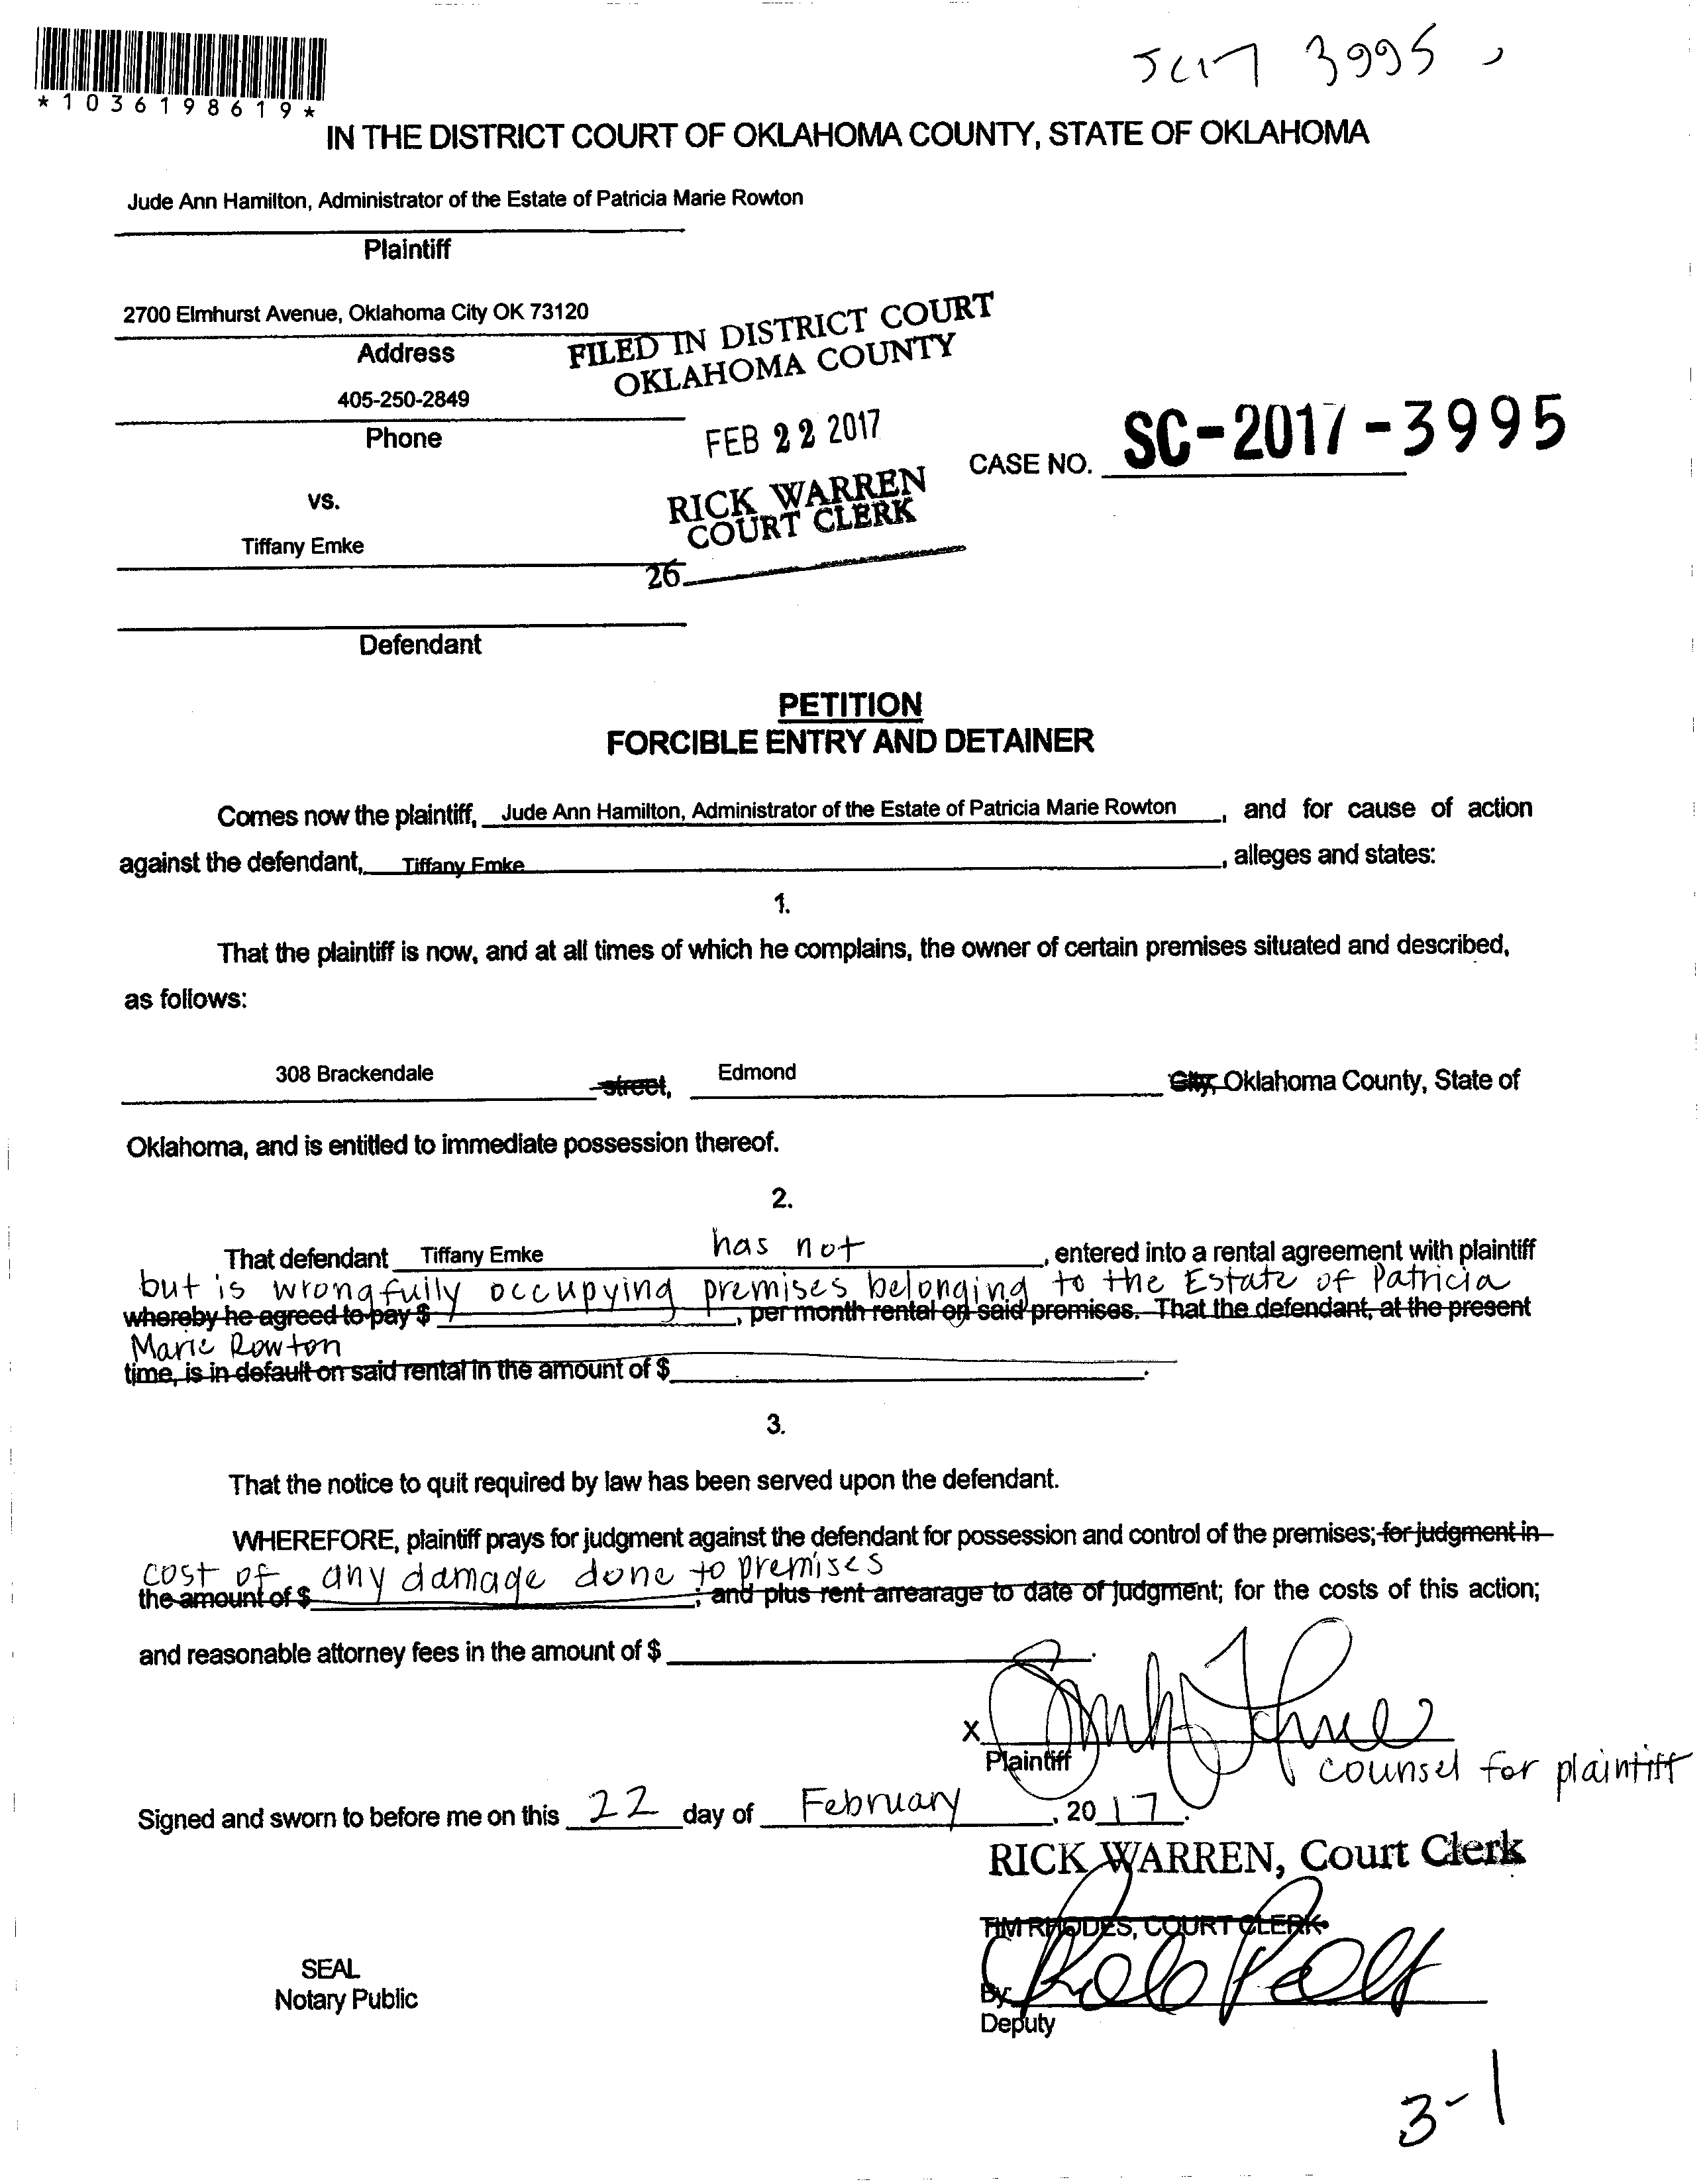 SC17 3995
*1036198619*
IN THE DISTRICT COURT OF OKLAHOMA COUNTY, STATE OF OKLAHOMA
Jude Ann Hamilton, Administrator of the Estate of Patricia Marie Rowton
Plaintiff
2700 Elmhurst Avenue, Oklahoma City OK 73120
Address
FILED IN DISTRICT COURT
OKLAHOMA COUNTY
405-250-2849
Phone
FEB 22 2017
CASE NO. SC-2017-3995
RICK WARREN
COURT CLERK
vs.
Tiffany Emke
26
Defendant
PETITION
FORCIBLE ENTRY AND DETAINER
Comes now the plaintiff, Jude Ann Hamilton, Administrator of the Estate of Patricia Marie Rowton, and for cause of action
against the defendant, Tiffany Emke, alleges and states:
1.
That the plaintiff is now, and at all times of which he complains, the owner of certain premises situated and described,
as follows:
308 Brackendale street, Edmond City, Oklahoma County, State of
Oklahoma, and is entitled to immediate possession thereof.
2.
That defendant Tiffany Emke has not, entered into a rental agreement with plaintiff
but is wrongfully occupying premises belonging to the Estate of Patricia
whereby he agreed to pay $, per month rental on said premises. That the defendant, at the present
Marie Rowton
time, is in default on said rental in the amount of $.
3.
That the notice to quit required by law has been served upon the defendant.
WHEREFORE, plaintiff prays for judgment against the defendant for possession and control of the premises; for judgment in
cost of any damage done to premises
the amount of $; and plus rent arrearage to date of judgment; for the costs of this action;
and reasonable attorney fees in the amount of $.
X
Plaintiff
counsel for plaintiff
Signed and sworn to before me on this 22 day of February, 2017.
RICK WARREN, Court Clerk
TIM RHODES, COURT CLERK
SEAL
Notary Public
By
Deputy
3-1